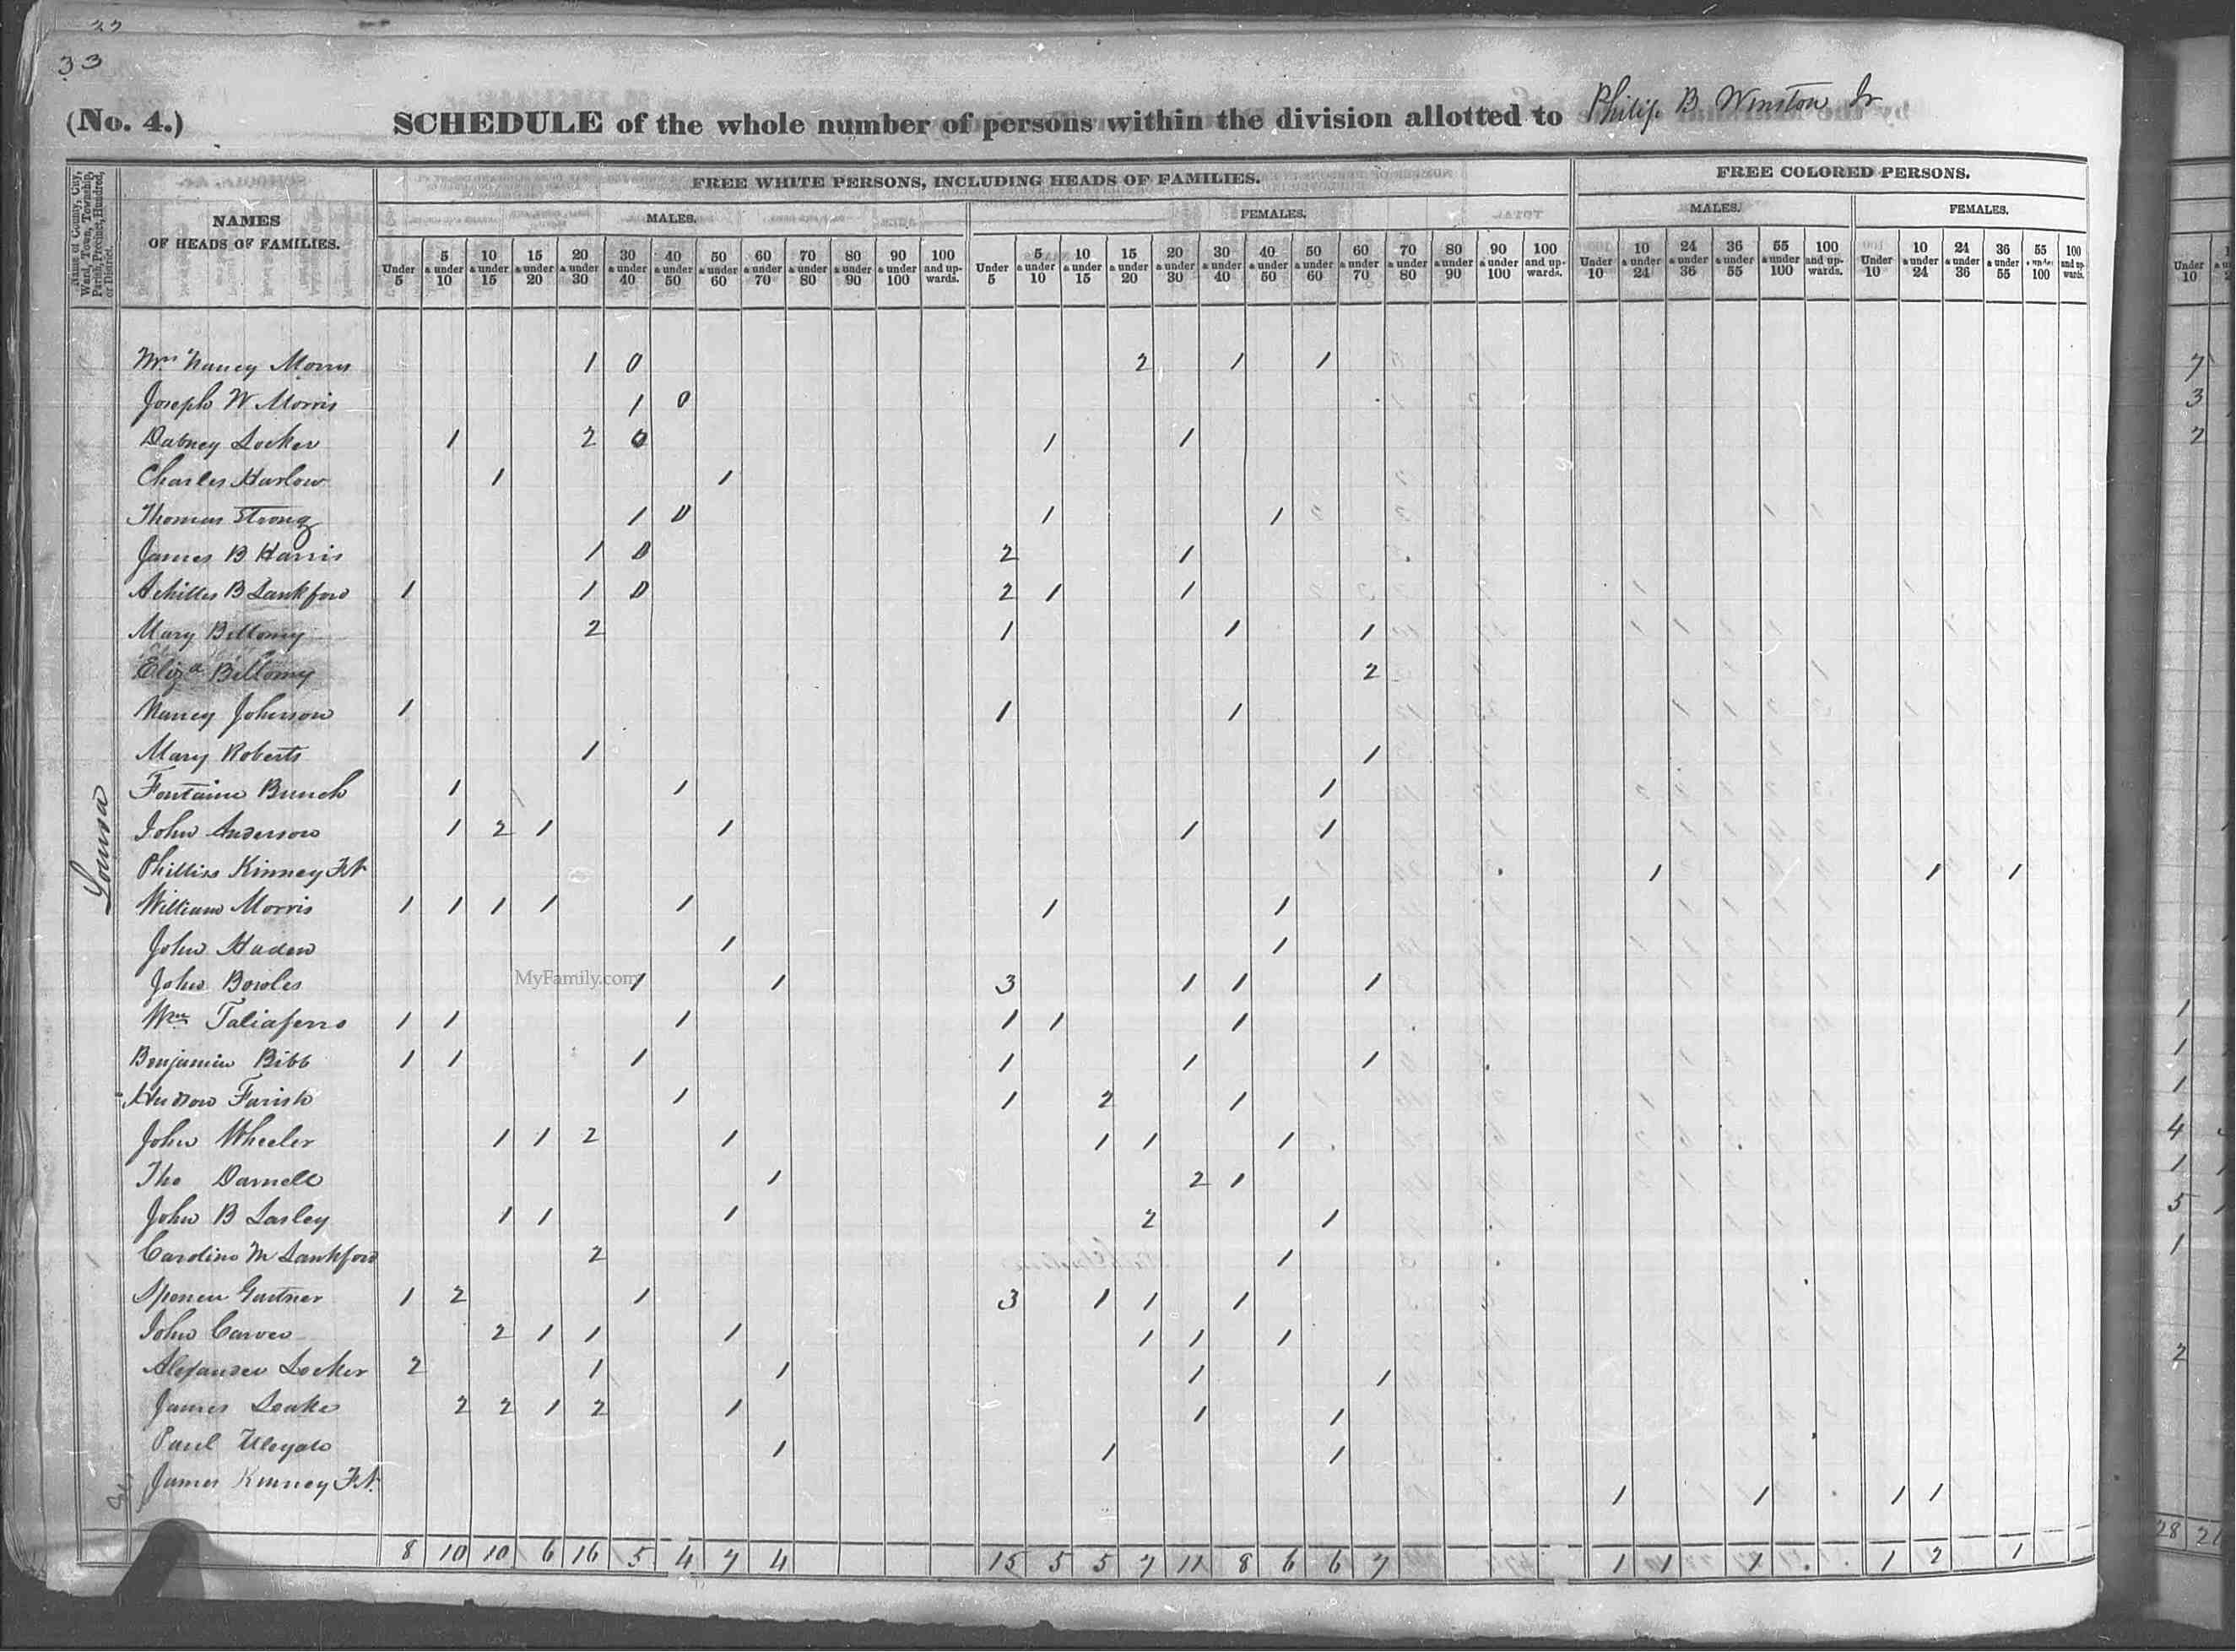 33
(No. 4.) SCHEDULE of the whole number of persons within the division allotted to Philip B Winston Jr
Name of County, City, Ward, Town, Township, Parish, Precinct, Hundred, or District.
NAMES OF HEADS OF FAMILIES.
FREE WHITE PERSONS, INCLUDING HEADS OF FAMILIES.
FREE COLORED PERSONS.
MALES. FEMALES. MALES. FEMALES.
Under 5 5 & under 10 10 & under 15 15 & under 20 20 & under 30 30 & under 40 40 & under 50 50 & under 60 60 & under 70 70 & under 80 80 & under 90 90 & under 100 100 and upwards.
Under 5 5 & under 10 10 & under 15 15 & under 20 20 & under 30 30 & under 40 40 & under 50 50 & under 60 60 & under 70 70 & under 80 80 & under 90 90 & under 100 100 and upwards.
Under 10 10 & under 24 24 & under 36 36 & under 55 55 & under 100 100 and upwards.
Under 10 10 & under 24 24 & under 36 36 & under 55 55 & under 100 100 and upwards.
Louisa
Mrs Nancy Morris 1 0 2 1 1
Joseph W Morris 1 0
Dabney Locker 1 2 0 1 1
Charles Harlow 1 1
Thomas Strong 1 0 1 1
James B Harris 1 0 2 1
Achilles B Lankford 1 1 0 2 1 1
Mary Bellomy 2 1 1 1
Eliza Bellomy 2
Nancy Johnson 1 1 1
Mary Roberts 1 1
Fontaine Bunch 1 1 1
John Anderson 1 2 1 1 1 1
Philliss Kinney FN 1 1 1
William Morris 1 1 1 1 1 1 1
John Haden 1 1
John Bowles 1 1 3 1 1 1
Wm Taliaferro 1 1 1 1 1 1
Benjamin Bibb 1 1 1 1 1 1
Hudson Farish 1 1 2 1
John Wheeler 1 1 2 1 1 1 1
Tho Darnell 1 2 1
John B Lasley 1 1 1 2 1
Caroline M Lankford 2 1
Spencer Gartner 1 2 1 3 1 1 1
John Carver 2 1 1 1 1 1 1
Alexander Locker 2 1 1 1 1
James Leake 2 2 1 2 1 1 1
Paul 1 1 1
James Kinney FN 1 1 1 1
8 10 10 6 16 5 4 7 4 15 5 5 7 11 8 6 6 7 1 1 1 1 2 1
MyFamily.com
Under 10
7
3
2
1
1
1
4
1
5
1
2
28